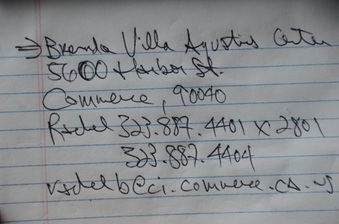 ⇒ Brenda Villa Aquatics Center
5600 Harbor St.
Commerce, 90040
Rachel 323.887.4401 x 2801
323.887.4404
rachelb@ci.commerce.ca.us